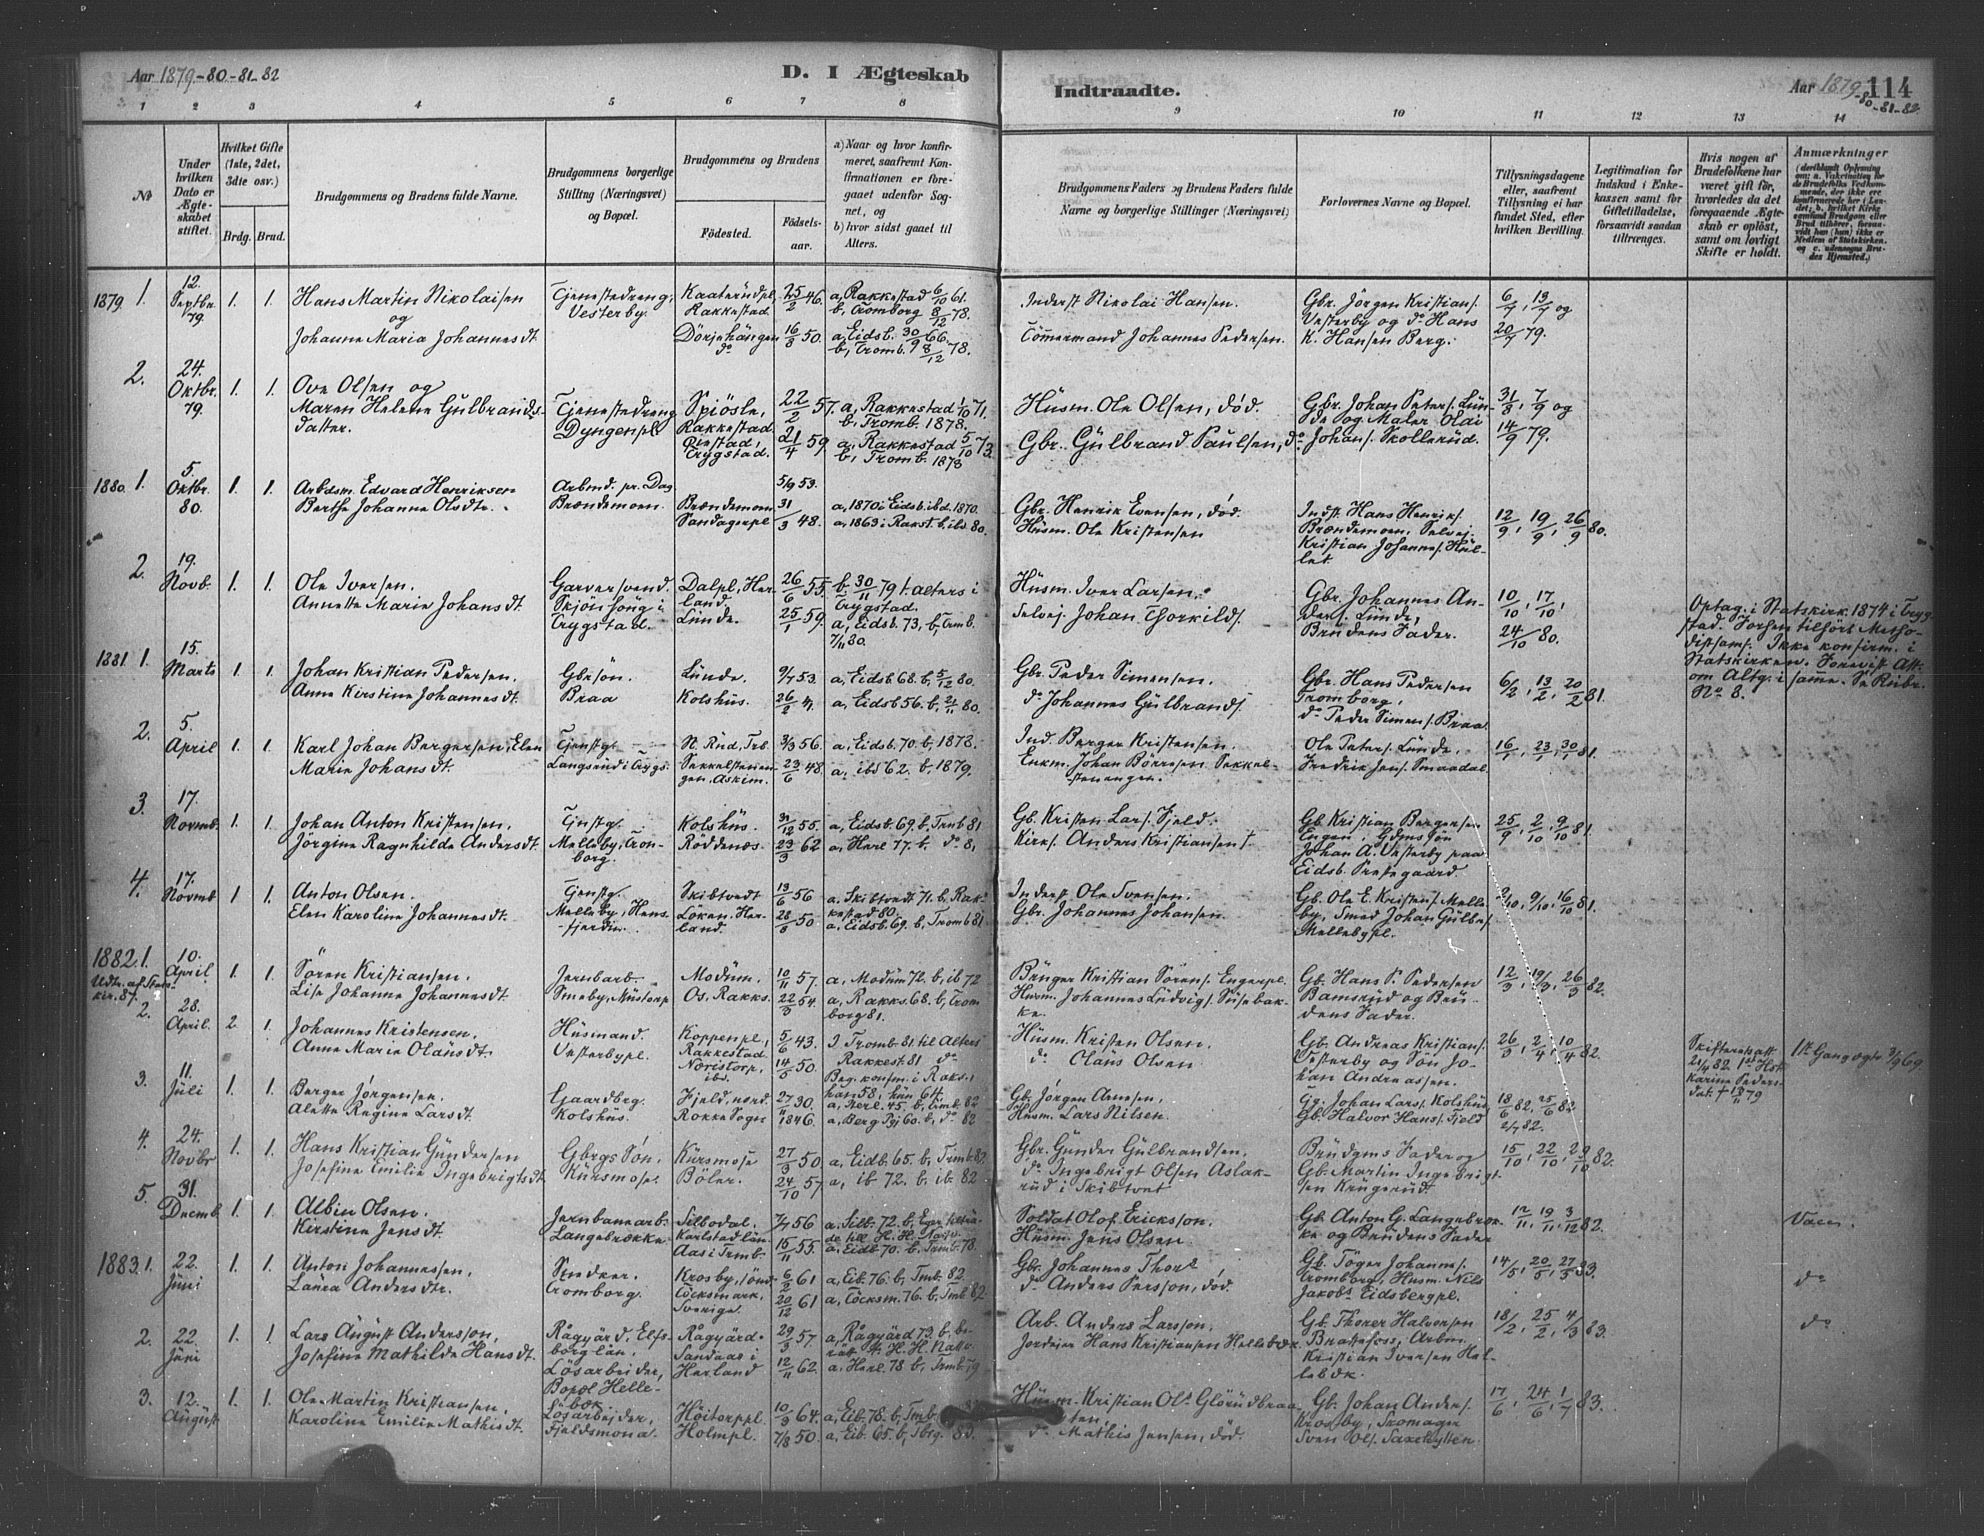 Aar 1879-80-81-82
D. I Ægteskab
Indtraadte.
Aar 1879
-80-81-82
114
1 2 3 4 5 6 7 8
9 10 11 12 13 14
№
Under hvilken Dato er Ægteskabet stiftet.
Hvilket Gifte (1ste, 2det, 3die osv.)
Brdg. Brud.
Brudgommens og Brudens fulde Navne.
Brudgommens borgerlige Stilling (Næringsvei) og Bopæl.
Brudgommens og Brudens
Fødested.
Fødselsaar.
a) Naar og hvor konfirmeret, saafremt Konfirmationen er foregaaet udenfor Sognet, og
b) hvor sidst gaaet til Alters.
Brudgommens Faders og Brudens Faders fulde Navne og borgerlige Stillinger (Næringsvei)
Forlovernes Navne og Bopæl.
Tillysningsdagene eller, saafremt Tillysning ei har fundet Sted, efter hvilken Bevilling.
Legitimation for Indskud i Enkekassen samt for Giftetilladelse, forsaavidt saadan tiltrænges.
Hvis nogen af Brudefolkene har været gift før, hvorledes da det foregaaende Ægteskab er opløst, samt om lovligt Skifte er holdt.
Anmærkninger
1879 1. 12. Septbr. 79. 1. 1. Hans Martin Nikolaisen Tjenestedreng, Kaaterudpl. 25/2 46. a, Rakkestad 6/10 61. Inderst Nikolai Hansen. Gbr. Jörgen Kristians. 6/7, 13/7 og
og Vesterby. Rakkestad. b, Tromborg 8/12 78. Vesterby og do Hans
Johanne Maria Johannesdt. 16/8 50. a, Eidsb. 30/9 66. Tömmermand Johannes Pedersen. K. Hansen Berg. 20/7 79.
do b, Tromb. 8/12 78.
2. 24. Oktbr. 79. 1. 1. Ove Olsen og Tjenestedreng Spiösle, 22/2 57. a, Rakkestad 1/10 71. Husm. Ole Olsen, död. Gbr. Johan Peters. Lün- 31/8, 7/9 og
Maren Helene Gulbrands- Dyngenpl. Rakkestad. b, Tromb. 1878. de og Maler Olai
datter. 21/4 59. a, Rakkestad 5/10 73. Gbr. Gülbrand Paulsen, do Johans. Skollerüd. 14/9 79.
Trygstad. b, Tromb. 1878
1880. 1. 5. Oktbr. 80. 1. 1. Arbdsm. Edvard Henriksen Arbmd. pr. Dag 5/9 53.
Berthe Johanne Olsdtr. Brændemoen. Brændemoen a, 1870 i Eidsb. ibd. 1870. Gbr. Henrik Evensen, död. Indst. Hans Henriks. 12/9, 19/9, 26/9 80.
Sandagerpl. 31/3 48. a, 1863 i Rakst. b, ibd 80. Husm. Ole Kristensen Brændemoen, Selvej.
Kristian Johannes. Hül-
let.
2. 19. Novb. 1. 1. Ole Iversen. Garversvend. Dalpl., Her- 26/6 55. b, 30/11 79 t. alters i Husm. Iver Larsen. Gbr. Johannes An- 10/10, 17/10,
Annette Marie Johansdt. i land. Trygstad. Selvej Johan Thorkilds. ders. Lünde,
Trygstad. Lünde. 25/1 59. a, Eidsb. 73, b, Tmb. Brudens Fader. 24/10 80.
7/11 80.
Optag. i Statskirk. 1874 i Tryg-
stad. Forhen tilhört Metho-
distsamf. Ikke konfirm. i
Statskirken. Forevist Att.
om Altg. i samme. Se Rubr.
No 8.
1881 1. 15. Marts 1. 1. Johan Kristian Pedersen. Gbrsön. Lünde. 9/7 53. a, Eidsb. 68. b, 5/12 80. Gbr. Peder Simensen. Gbr. Hans Pedersen 6/2, 13/2, 20/2 81.
Anne Kirstine Johannesdt. Braa Kolshüs. 26/2 41. a, Eidsb. 56. b, 21/11 80. do Johannes Gülbrands. Tromborg,
do Peder Simens. Braa.
2. 5. April 1. 1. Karl Johan Bergersen, Elen Tjenstg. N. Rüd, Trb. 3/3 56. a, Eidsb. 70. b, 1878. Ind. Berger Kristensen. Ole Peters. Lünde. 16/1, 23/1, 30/1 81.
Marie Johansdt. Langsrud i Trygs. Sekkelstenen- 23/6 48. a, ibd 62. b, 1879. Enkm. Johan Börresen Sekkel- Fredrik Jens. Smaadal.
gen, Askim. stenengen.
3. 17. Novmb. 1. 1. Johan Anton Kristensen. Tjnstg. Kolshüs. 31/12 55. a, Eidsb. 69. b, Tmb 81 Gb. Kristen Lars. Fjeld. Gb. Kristian Bergersen 25/9, 2/10, 9/10 81.
Jörgine Ragnhilde Andersdt. Melleby, Trom- Röddenæs. 23/3 62 a, Herl 77. b, do 8, Kirks. Anders Kristiansen † Engen, Gdgms Sön
borg. Johan A. Vesterby paa
Eidsb. Prestegaard.
4. 17. Novmb 1. 1. Anton Olsen. Tjenstg. Skibtvedt 13/6 56 a, Skibtvedt 71. b, Rak- Inderst Ole Svensen. Gb. Ole E. Kristens. Melle- 2/10, 9/10, 16/10 81.
Elen Karoline Johannesdt. Melleby, Löken, Her- kestad 80. Gbr. Johannes Johansen by, Smed Johan Gülbr.
land. 28/8 50. a, Eidsb. 69. b, Tromb 81 Mellebypl.
1882. 1. 10. April 1. 1. Sören Kristiansen. Jernbarb. Modüm. 10/11 57. a, Modüm 72. b, ib 72 Brüger Kristian Sörens. Engerpl. Gb. Hans P. Pedersen 12/3, 19/3, 26/3 82.
Udtr. af Stats- Lise Johanne Johannesdt. Smeby, Os, Rakks. 22/3 54. a, Rakks. 68. b, Trom Husm. Johannes Lüdvigs. Süsebak- Bamsrud og Brü-
kir. 87. borg 81. ke. dens Fader.
2. 28. April. 2. 1. Johannes Kristensen. Husmand. Koppenpl, 5/6 43. I Tromb. 81. til Alters Husm. Kristen Olsen. Gb. Andreas Kristians. 26/3, 2/4, 10/4 82.
Anne Marie Olausdt. Vesterbypl. Rakkestad. Rakkest. 81 do do Claus Olsen. Vesterby og Sön Jo-
14/5 50. Beg. konfm. i Raks., han Andreassen.
ibd. han 58, hun 64.
Skifteretsatt.
21/4 82. 1st Hst.
Karine Peders-
dat. † 1879
1st Gang ægtv. 69
3. 11. Juli 1. 1. Berger Jörgensen. Gaardbrg. Fjeld, nord. 27/11 30 a, Herl. 45. b, Tmb. 82 Gb. Jörgen Arnesen. Gg. Johan Lars. Kolshüs, 18/6 82, 25/6 82
Alette Regine Larsdt. Kolshüs. Rokke Sogn 1846. a, Berg Pgj 60. b, do 82 Husm. Lars Nilsen. Gb. Halvor Hans. Fjeld 2/7 82.
4. 24. Novbr 1. 1. Hans Kristian Gündersen Gbrgs Sön. Kürsmose 27/3 50 a, Eidb. 65. b, Tmb. 82. Gbr. Günder Gülbrandsen. Brüdgms Fader og 15/10, 22/10, 29/10 82.
Josefine Emilie Ingebrigtsdt. Kürsmose. Böler. 24/10 57. a, ib 72. b, ib. 82 do Ingebrigt Olsen Aslak- Gb. Martin Ingebrigt-
rüd i Skibtvet sen Krügerüd.
5. 31. Decmb. 1. 1. Albin Olsen. Jernbanearb. Silbodal, 7/7 56 a, Silb. 72. b, Eger Soldat Olof Ericksson. Gb. Anton G. Langebræk- 12/11, 19/11, 3/12 82.
Kirstine Jensdt. Langebrække. Karlstad län. Husm. Jens Olsen. ke og Brudens Fader
Aas i Trmb. 15/11 55. a, Eidb. 70. b, Trmb. 78.
Vacc.
1883. 1. 22. Juni 1. 1. Anton Johannesen. Snedker. Krosby, söndr 6/2 61 a, Eib. 76. b, Tmb. 82. Gbr. Johannes Thors. Gb. Töger Johannes. 14/5, 20/5, 27/5 83.
Laura Andersdtr. Tromborg. Töcksmark, 20/12 61 a, Töcksm. 76. b, Tmb 82. do Anders Persson, död. Tromborg, Husm. Nils
Sverige. Jakobs. Eidsbergpl.
do
2. 22. Juni 1. 1. Lars August Andersson, Rågyärd, Elfs- Rågyärd. 29/3 57. a, Rågyärd 73. b, be- Arb. Anders Larsson. Gb. Thorer Halvorsen 18/2, 25/2, 4/3 83.
Josefine Mathilde Hansdt. borg län. Sandaas i rätt. t. H. H. Nattv. Jordeier Hans Kristiansen Hellebæk. Brattefoss, Arbm.
Lösarbeider, Herland 12/11 62. a, Herl. 78. b, Tmb. 79 Kristian Iversen Hel-
Bopæl Helle- lebæk.
bæk
do
3. 12. August 1. 1. Ole Martin Kristiansen. Lösarbeider, Höitorppl. 10/3 64. a, Eib. 78. b, Tmb. 82 Husm. Kristian Ols. Glörüdbraa- Gb. Johan Anders. 17/6, 24/6, 1/7 83.
Karoline Emilie Mathisdt. Fjeldsmona. Holmpl. 7/8 50. a, Eib. 65. b, Tbrg. 83. ten. Krosby, Skomager
do Mathis Jensen, död. Sven Ols. Saxehytten.